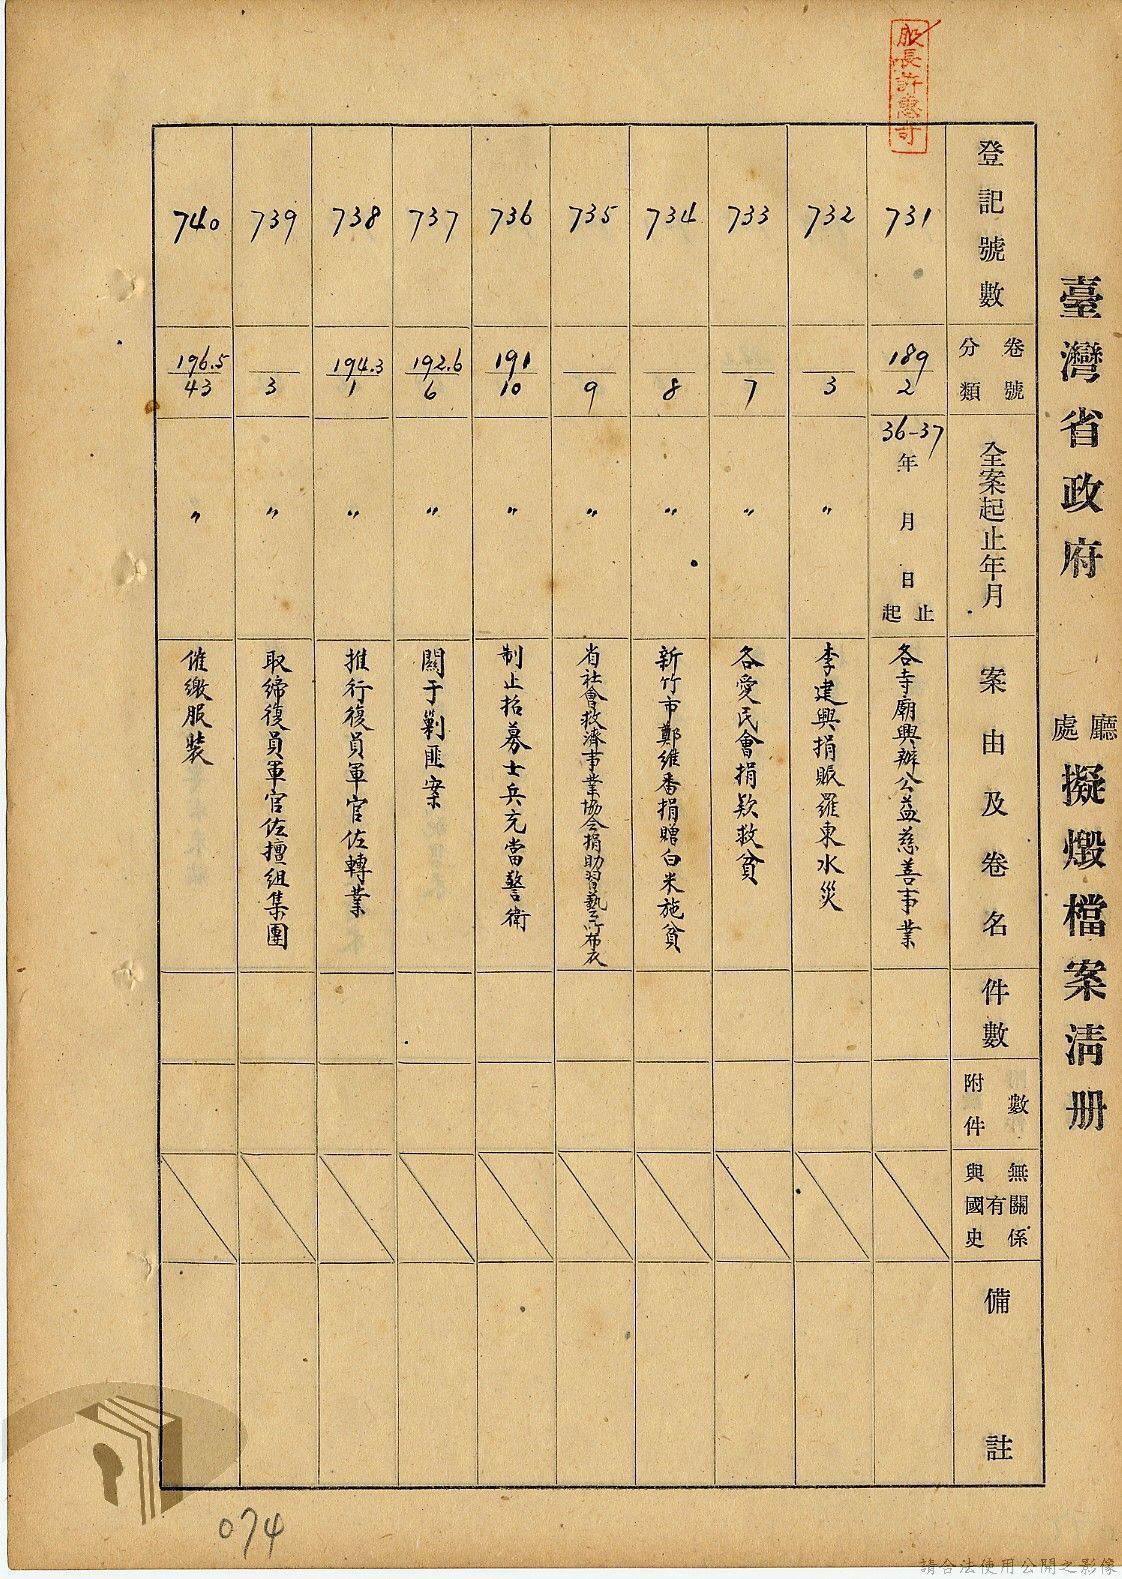 臺灣省政府 廳處 擬燬檔案清册
股長許惠可
登記號數
分類 卷號
全案起止年月
案由及卷名
件數
附件 數
與國史 有 無關係
備註
731
189
2
36-37
年 月 日 起 止
各寺廟興辦公益慈善事業
732
3
〃
李建興捐賑羅東水災
733
7
〃
各愛民會捐欵救貧
734
8
〃
新竹市鄭維番捐贈白米施貧
735
9
〃
省社會救濟事業協会捐助習藝所布衣
736
191
10
〃
制止招募士兵充當警衛
737
192.6
6
〃
關于剿匪案
738
194.3
1
〃
推行復員軍官佐轉業
739
3
〃
取締復員軍官佐擅組集團
740
196.5
43
〃
催繳服裝
074
請合法使用公開之影像